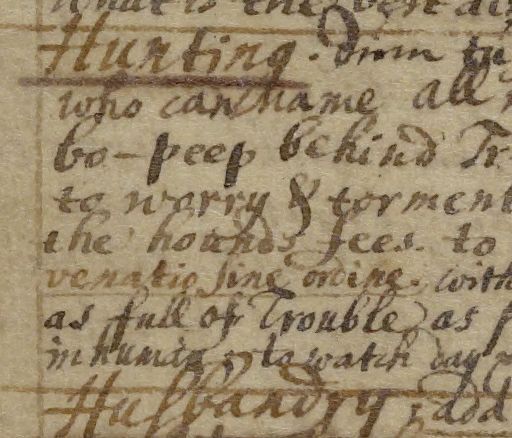 what is the best
Hunting. Dinn
who can name all
bo-peep behind Tr
to worry & torment
the hounds fees. to
venatio sine ordine. with
as full of Trouble, as f
inhumix; to watch day
Husbandry; add